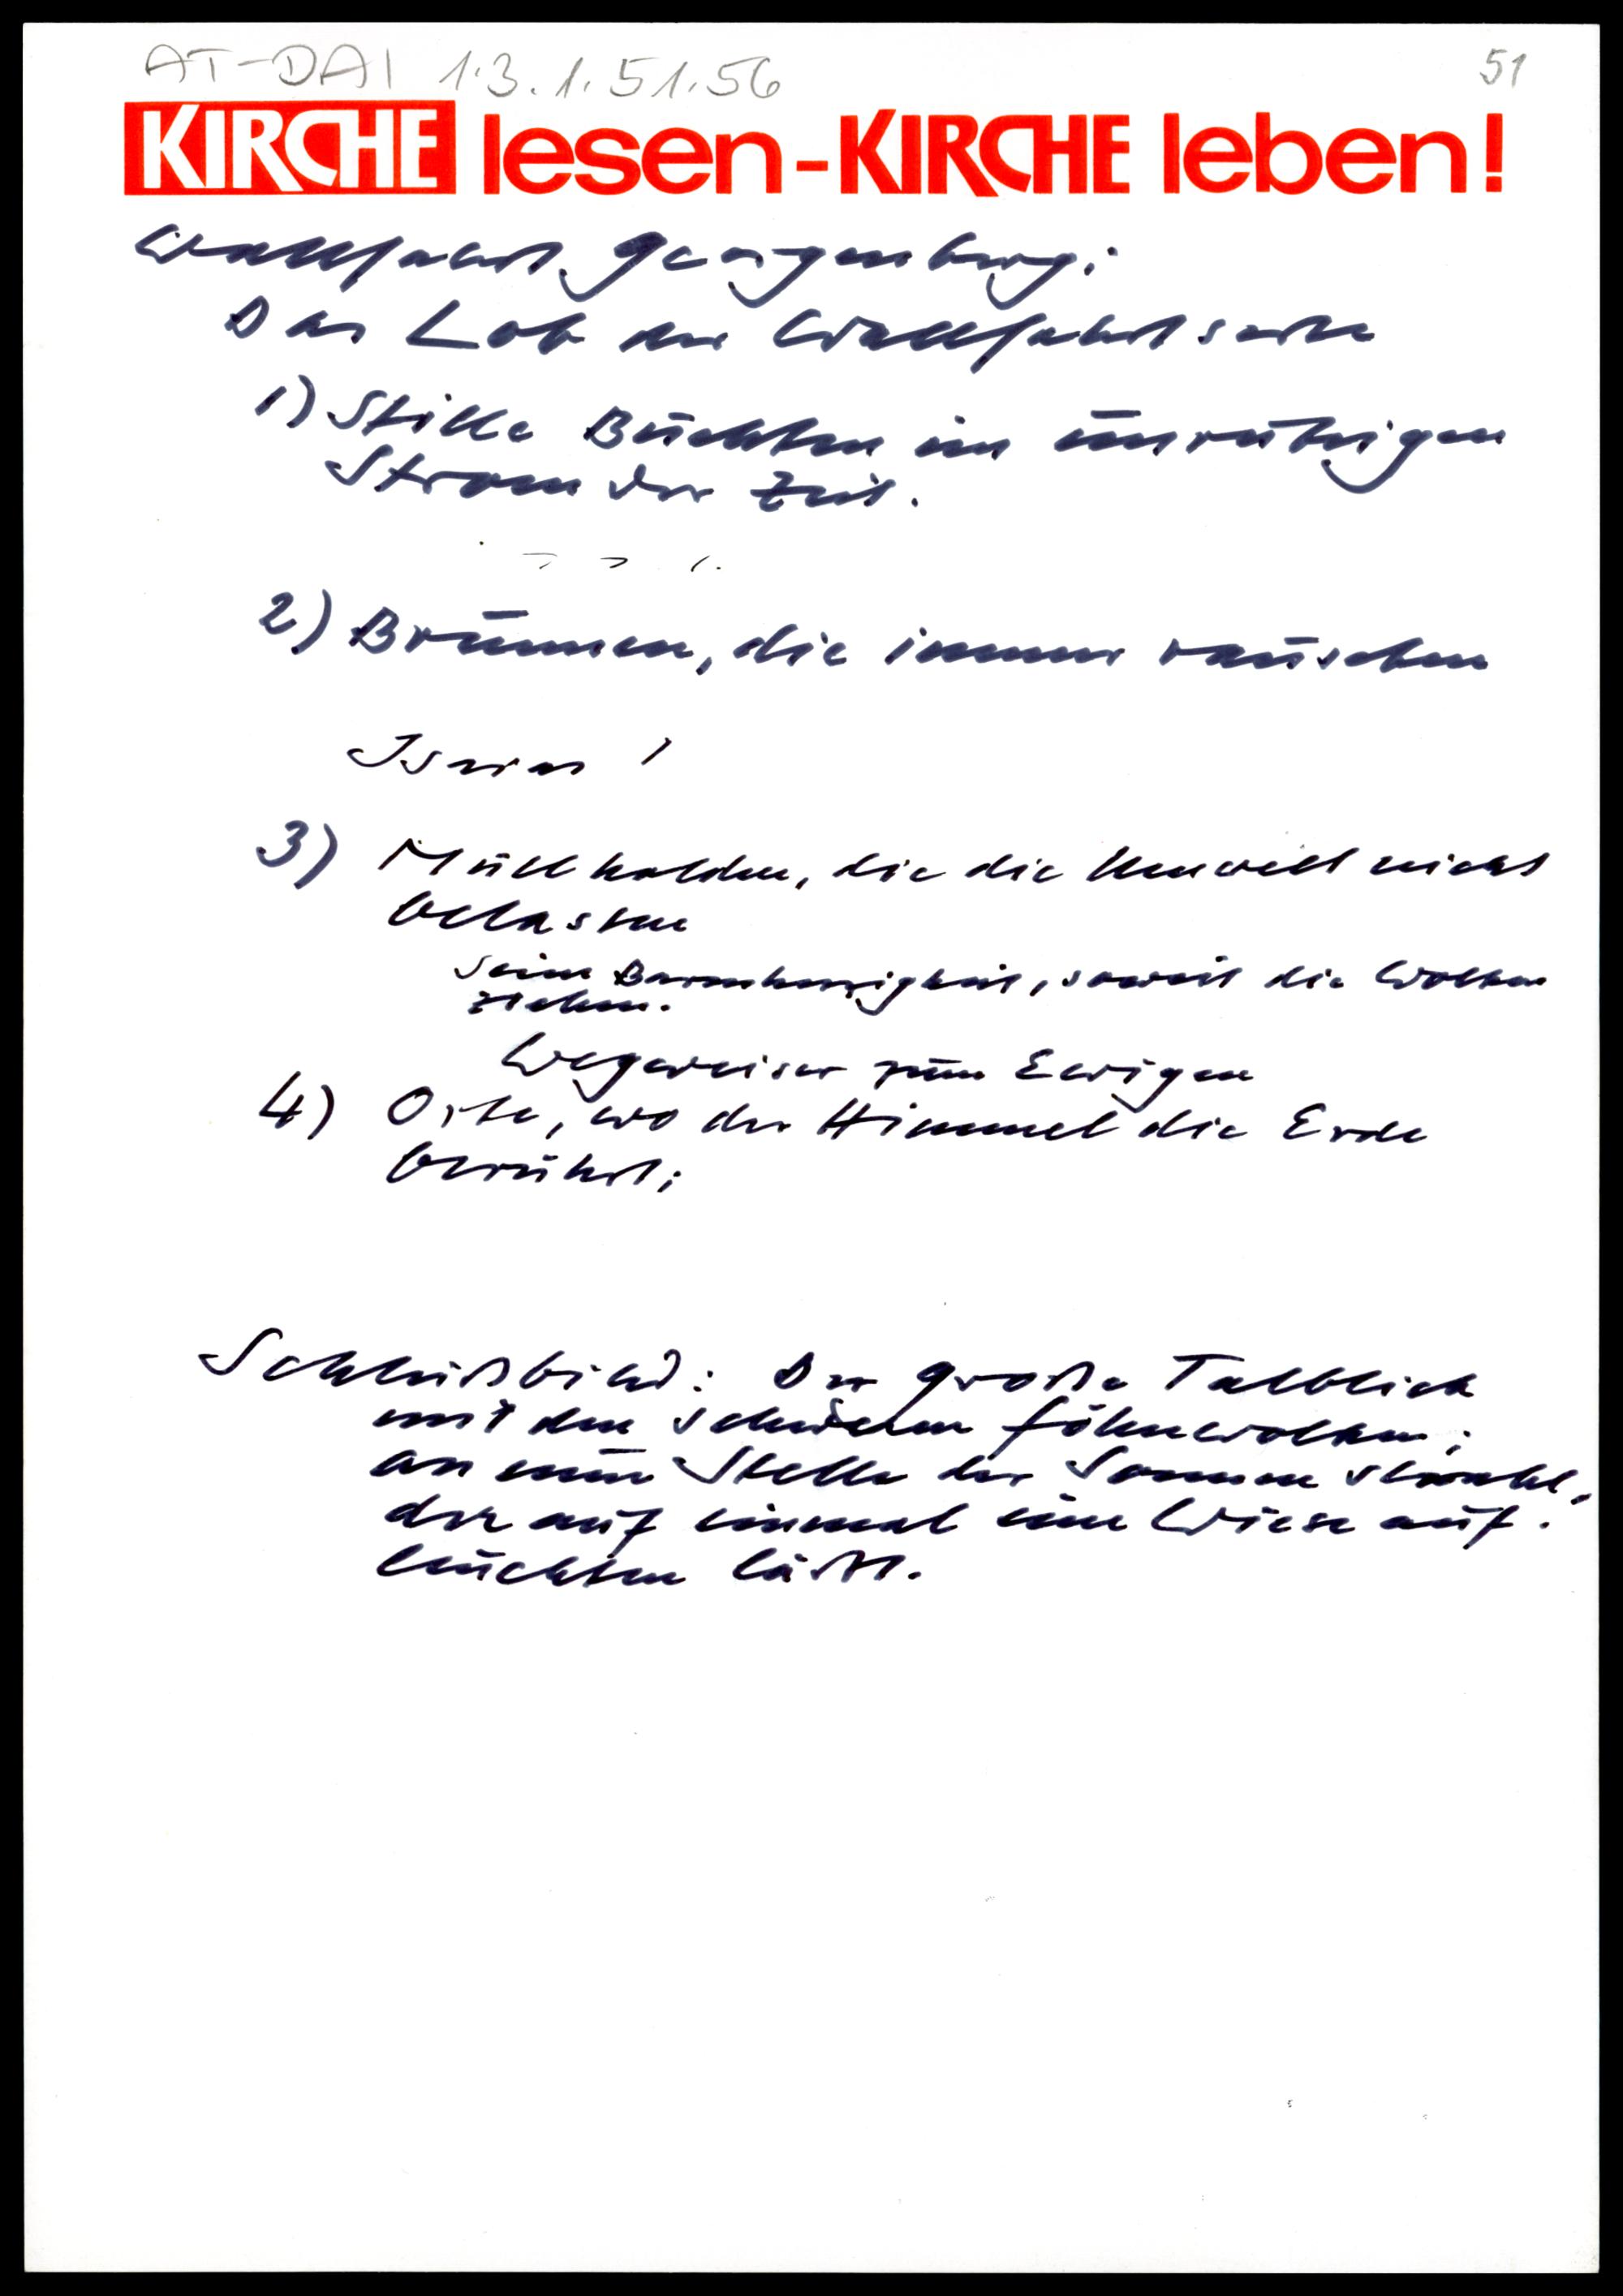 AT-DAI 1.3.1.51.56
51
KIRCHE lesen-KIRCHE leben!
Wallfahrt Georgenberg:
Das Lob der Wallfahrtsorte
1) Stille Buchten im unruhigen
Strom der Zeit.
2) Brunnen, die immer rauschen
Isaias 1
3) Müllhalden, die die Umwelt nicht
belasten
Seine Barmherzigkeit, soweit die Wolken
ziehen.
Wegweiser zum Ewigen
4) Orte, wo der Himmel die Erde
berührt;
Schlußbild: Der große Talblick
mit den schweren Föhnwolken;
an einer Stelle der Sonnenstrahl,
der auf einmal eine Wiese auf-
leuchten läßt.